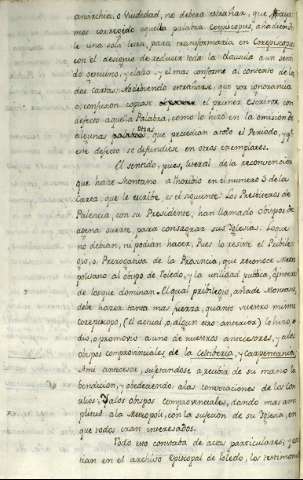 anarchia, o Viudedad, no deberá estrañar, que
mos corregido aquella palabra Corepiscopus, añadiendo
le una sola letra, para transformarla en Corepiscopus
con el designio de reducir toda la clausula a un senti
do genuino, y claro y el mas conforme al contexto de la
dos Cartas. No debiendo estrañarse, que por ignorancia
o confusion copiase el primer escritor con
defecto aquella Palabra, como lo hizo en la omision de
algunas otras que precedian a todo el Periodo, y
este defecto se difundiese en otros exemplares.
El sentido, pues, literal de la reconvencion
que hace Montano a Thoribio en el numero 3 de la
Carta, que le escribe es el siguiente: Los Presbiteros de
Palencia, con su Presidente, han llamado obispos de
agena suerte, para consagrar sus Iglesias. Lo que
no debian, ni podian hacer. Pues lo resiste el Privile
gio, o Prerrogativa de la Provincia, que reconoce Metro
politano al obispo de Toledo, y la utilidad publica,
de los que dominan. El qual privilegio, añade Montano,
debe hacer tanta mas fuerza, quanto vuestro mismo
corepiscopo, (el actual o algun otro anterior) lo hizo,
dio, o promovio a uno de nuestros antecesores, y a los
obispos comprovinciales de la Celtiberia, y Carpentania.
Ami antecesor sujetandose a recibir de su mano la
bendicion, y obedeciendo a las convocaciones de los Con
cilios, Y a los obispos comprovinciales, dando mas am
plitud a la Metropoli, con la sujecion de su Iglesia, en
que todos eran interesados.
Todo esto constaba de actas particulares, y
tian en el archivo Episcopal de Toledo, los testimonios